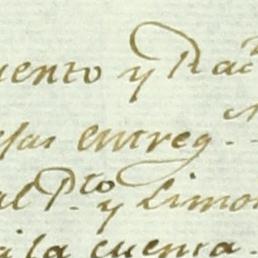 uento y Rac
sas entreg.
al P.to y Limon
la cuenta.